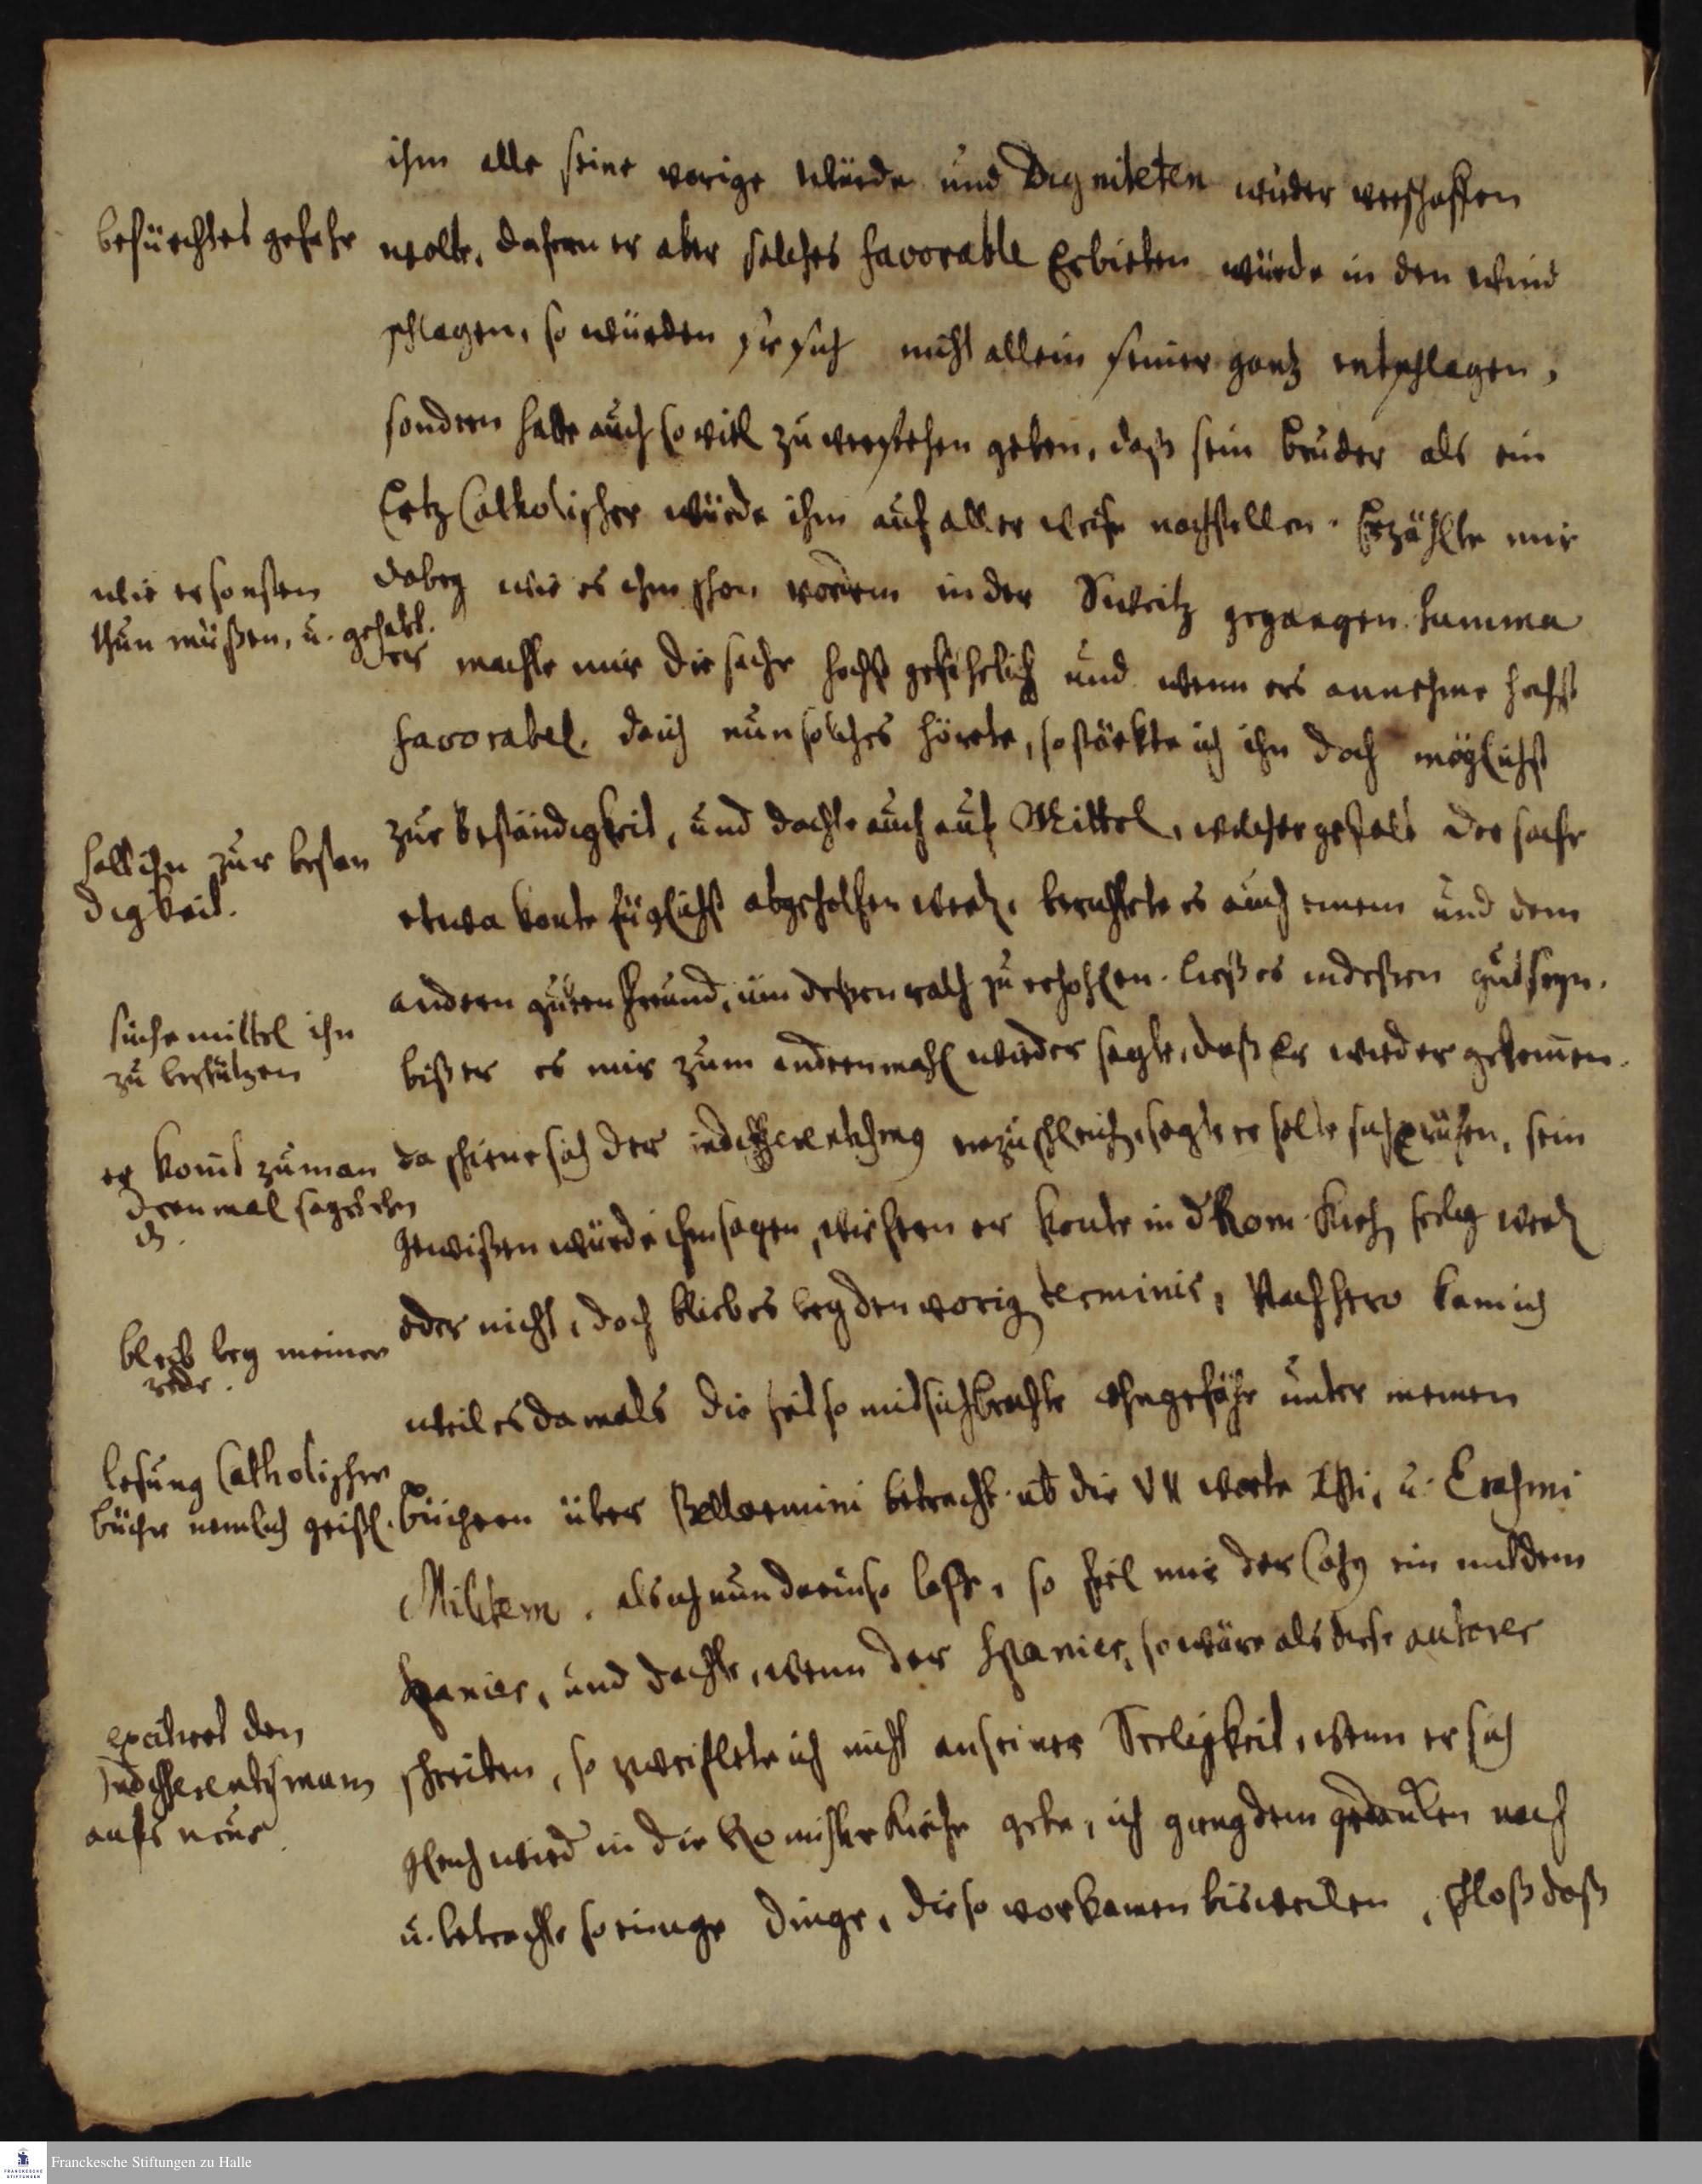 ihm alle seine vorige Würde und Digniteten wieder verschaffen
befürchtes gefahr
wolte, dafern er aber solches favorable Erbieten würde in den Wind
schlagen, so würden sie sich nicht allein seiner gantz entschlagen,
sondern habe auch so viel zu verstehen geben, daß sein Bruder als ein
Ertz Catholischer würde ihm auf aller weise nachstellen. Erzählte mir
wie er sonsten
thun müßen, u. gefähl.
dabey wie es ihm schon vordem in der Sweitz gegangen. Summa
er machte mir die sache höchst gefehrlich und wenn ers annehme höchst
favorabel. da ich nun solches hörete, so stärkte ich ihn doch möglichst
halt ihn zur bestän
digkeit.
zur Beständigkeit, und dachte auch auf Mittel, welcher gestalt der sache
etwa konte füglichst abgeholfen werden, berichtete es auch einem und dem
andern guten Freund, um deßen rath zu erhohlen. ließ es indeßen gut seyn.
suche mittel ihn
zu beschützen
biß er es mir zum andernmahl wieder sagte, daß Er wieder gekommen.
er komt zum an
dernmal sagt
da schiene sich der indifferentismus einzuschleichen, sagte er solte sich prüfen, sein
Gewißen würde ihm sagen, wiefern er konte in d Rom. Kirch seelig werden
bleib bey meiner
rede.
oder nicht, doch bliebes bey den vorigen terminis, Nachhero kam ich
weil es damals die Zeit so mit sich brachte ohngefähr unter meinen
lesung Catholischer
bücher nemlich geistl.
Büchern über Bellarmini betracht. üb die VII Worte Xsti, u. Erasmi
Militem. als ich nun darinn so lase, so fiel mir der Casus ein mit dem
Spanier, und dachte, wenn der Spanier, so wäre als diese autores
excitiret den
Indifferentismum
aufs neue.
schreiben, so zweiflete ich nicht an seiner Seeligkeit, wenn er sich
gleich wied in die Romische Kirche gebe, ich gieng dem gedanken nach
u. betrachte so einige Dinge, die so vorkamen bisweilen, schloß daß
Franckesche Stiftungen zu Halle